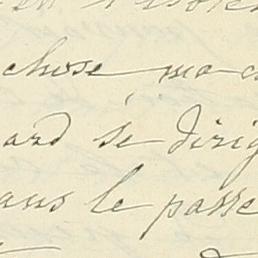 chose ma
ard se dirig
ans le passe